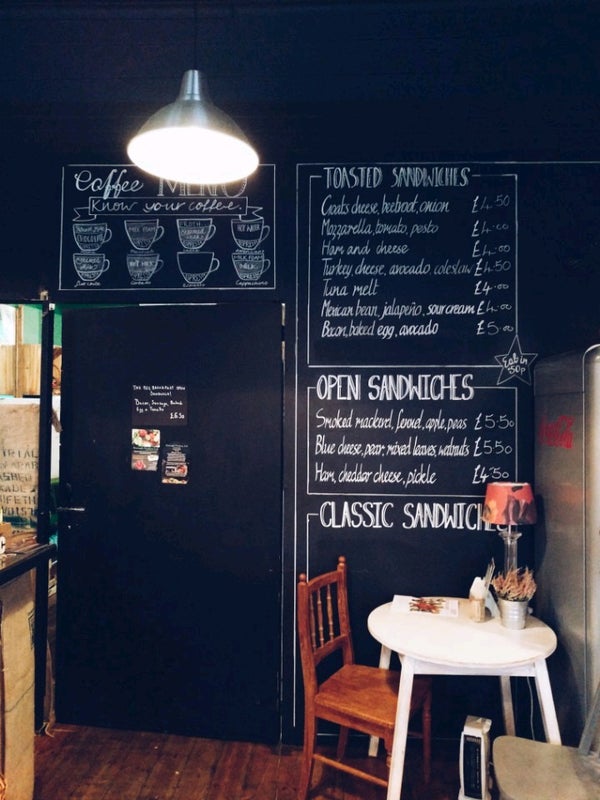 Coffee MENU
Know your coffee.
MILK FOAM
HOT WATER
ESPRESSO
HOT MILK
ESPRESSO
MILK FOAM
ESPRESSO
Cappuccino
TOASTED SANDWICHES
Goats cheese, beetroot, onion £4.50
Mozzarella, tomato, pesto £4.00
Ham and cheese £4.00
Turkey, cheese, avocado, coleslaw £4.50
Tuna melt £4.00
Mexican bean, jalapeño, sour cream £4.00
Bacon, baked egg, avocado £5.00
Eat in
50p
OPEN SANDWICHES
Smoked mackerel, fennel, apple, peas £5.50
Blue cheese, pear, mixed leaves, walnuts £5.50
Ham, cheddar cheese, pickle £4.50
CLASSIC SANDWICHES
THE BIG BREAKFAST OPEN
SANDWICH!
Bacon, Sausage, Baked
Egg + Tomato
£6.50
Coca-Cola